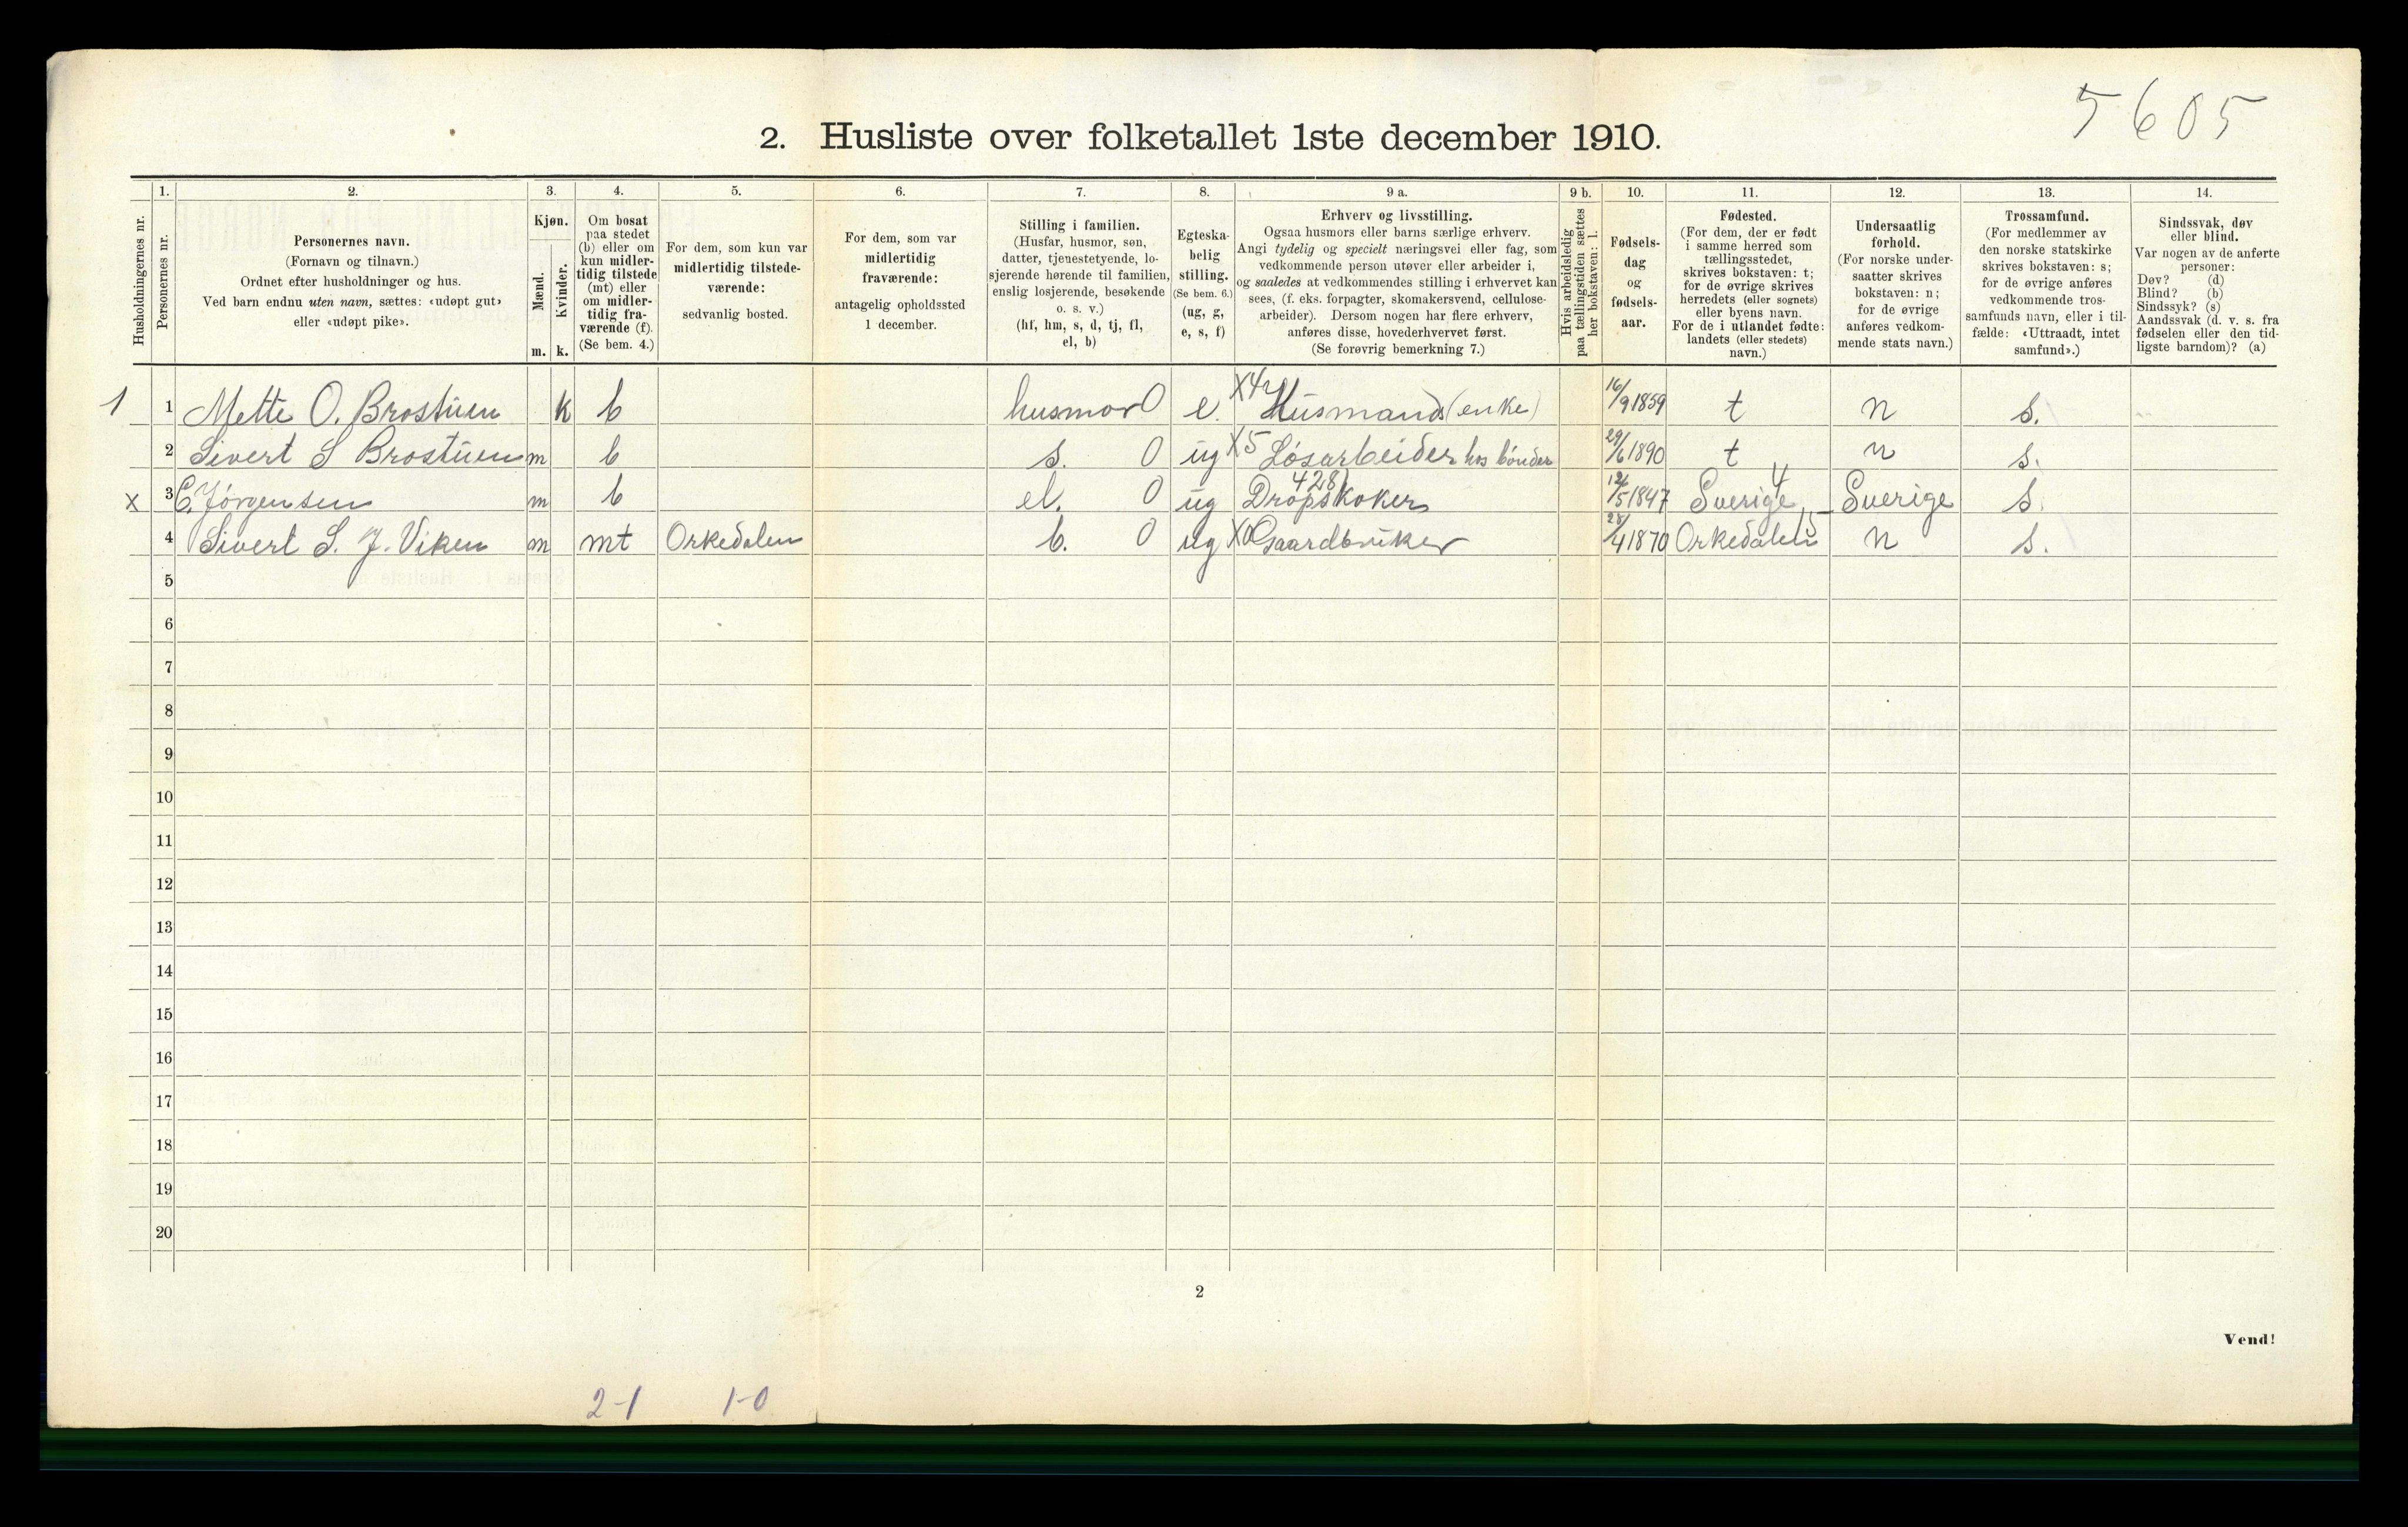 5605
2. Husliste over folketallet 1ste december 1910.
1. 2. 3. 4. 5. 6. 7. 8. 9 a. 9 b. 10. 11. 12. 13. 14.
Husholdningernes nr.
Personernes nr.
Personernes navn.
(Fornavn og tilnavn.)
Ordnet efter husholdninger og hus.
Ved barn endnu uten navn, sættes: «udøpt gut»
eller «udøpt pike».
Kjøn.
Mænd.
Kvinder.
m. k.
Om bosat
paa stedet
(b) eller om
kun midler-
tidig tilstede
(mt) eller
om midler-
tidig fra-
værende (f).
(Se bem. 4.)
For dem, som kun var
midlertidig tilstede-
værende:
sedvanlig bosted.
For dem, som var
midlertidig
fraværende:
antagelig opholdssted
1 december.
Stilling i familien.
(Husfar, husmor, søn,
datter, tjenestetyende, lo-
sjerende hørende til familien,
enslig losjerende, besøkende
o. s. v.)
(hf, hm, s, d, tj, fl,
el, b)
Egteska-
belig
stilling.
(Se bem. 6.)
(ug, g,
e, s, f)
Erhverv og livsstilling.
Ogsaa husmors eller barns særlige erhverv.
Angi tydelig og specielt næringsvei eller fag, som
vedkommende person utøver eller arbeider i,
og saaledes at vedkommendes stilling i erhvervet kan
sees, (f. eks. forpagter, skomakersvend, cellulose-
arbeider). Dersom nogen har flere erhverv,
anføres disse, hovederhvervet først.
(Se forøvrig bemerkning 7.)
Hvis arbeidsledig
paa tællingstiden sættes
her bokstaven: l.
Fødsels-
dag
og
fødsels-
aar.
Fødested.
(For dem, der er født
i samme herred som
tællingsstedet,
skrives bokstaven: t;
for de øvrige skrives
herredets (eller sognets)
eller byens navn.
For de i utlandet fødte:
landets (eller stedets)
navn.)
Undersaatlig
forhold.
(For norske under-
saatter skrives
bokstaven: n;
for de øvrige
anføres vedkom-
mende stats navn.)
Trossamfund.
(For medlemmer av
den norske statskirke
skrives bokstaven: s;
for de øvrige anføres
vedkommende tros-
samfunds navn, eller i til-
fælde: «Uttraadt, intet
samfund».)
Sindssvak, døv
eller blind.
Var nogen av de anførte
personer:
Døv? (d)
Blind? (b)
Sindssyk? (s)
Aandssvak (d. v. s. fra
fødselen eller den tid-
ligste barndom)? (a)
1 1 Mette O. Brostuen k b husmor 0 e. Husmands (enke) 16/9 1859 t n s.
2 Sivert S Brostuen m b s. 0 ug X5 Løsarbeider hos bönder 29/6 1890 t n s.
428 4
x 3 E. Jörgensen m b el. 0 ug Dropskoker 12/5 1847 Sverige Sverige s.
4 Sivert S. J. Viken m mt Orkedalen b. 0 ug X0 Gaardbruker 28/4 1870 Orkedalen n s.
5
6
7
8
9
10
11
12
13
14
15
16
17
18
19
20
2
Vend!
2-1 1-0